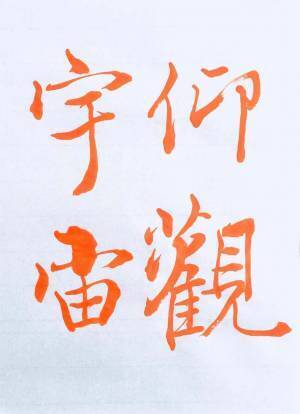 仰觀
宇宙